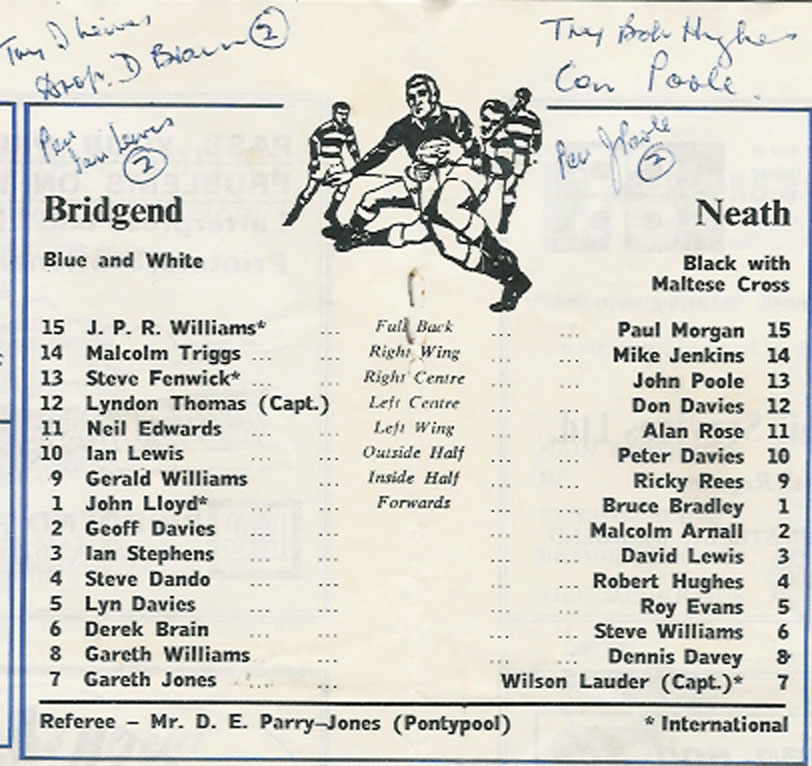 Try Bob Hughes
Drop. D Brain 2
Con Poole.
Pen Ian Lewis 2
Pen J Poole 2
Bridgend
Neath
Blue and White
Black with
Maltese Cross
15 J. P. R. Williams* ... Full Back ... Paul Morgan 15
14 Malcolm Triggs ... ... Right Wing ... ... Mike Jenkins 14
13 Steve Fenwick* ... ... Right Centre ... ... John Poole 13
12 Lyndon Thomas (Capt.) Left Centre ... ... Don Davies 12
11 Neil Edwards ... ... Left Wing ... ... Alan Rose 11
10 Ian Lewis ... ... Outside Half ... ... Peter Davies 10
9 Gerald Williams ... Inside Half ... ... Ricky Rees 9
1 John Lloyd* ... ... Forwards ... ... Bruce Bradley 1
2 Geoff Davies ... ... ... ... Malcolm Arnall 2
3 Ian Stephens ... ... ... ... David Lewis 3
4 Steve Dando ... ... ... ... Robert Hughes 4
5 Lyn Davies ... ... ... ... Roy Evans 5
6 Derek Brain ... ... ... ... Steve Williams 6
8 Gareth Williams ... ... ... ... Dennis Davey 8
7 Gareth Jones ... ... Wilson Lauder (Capt.)* 7
Referee – Mr. D. E. Parry–Jones (Pontypool) * International